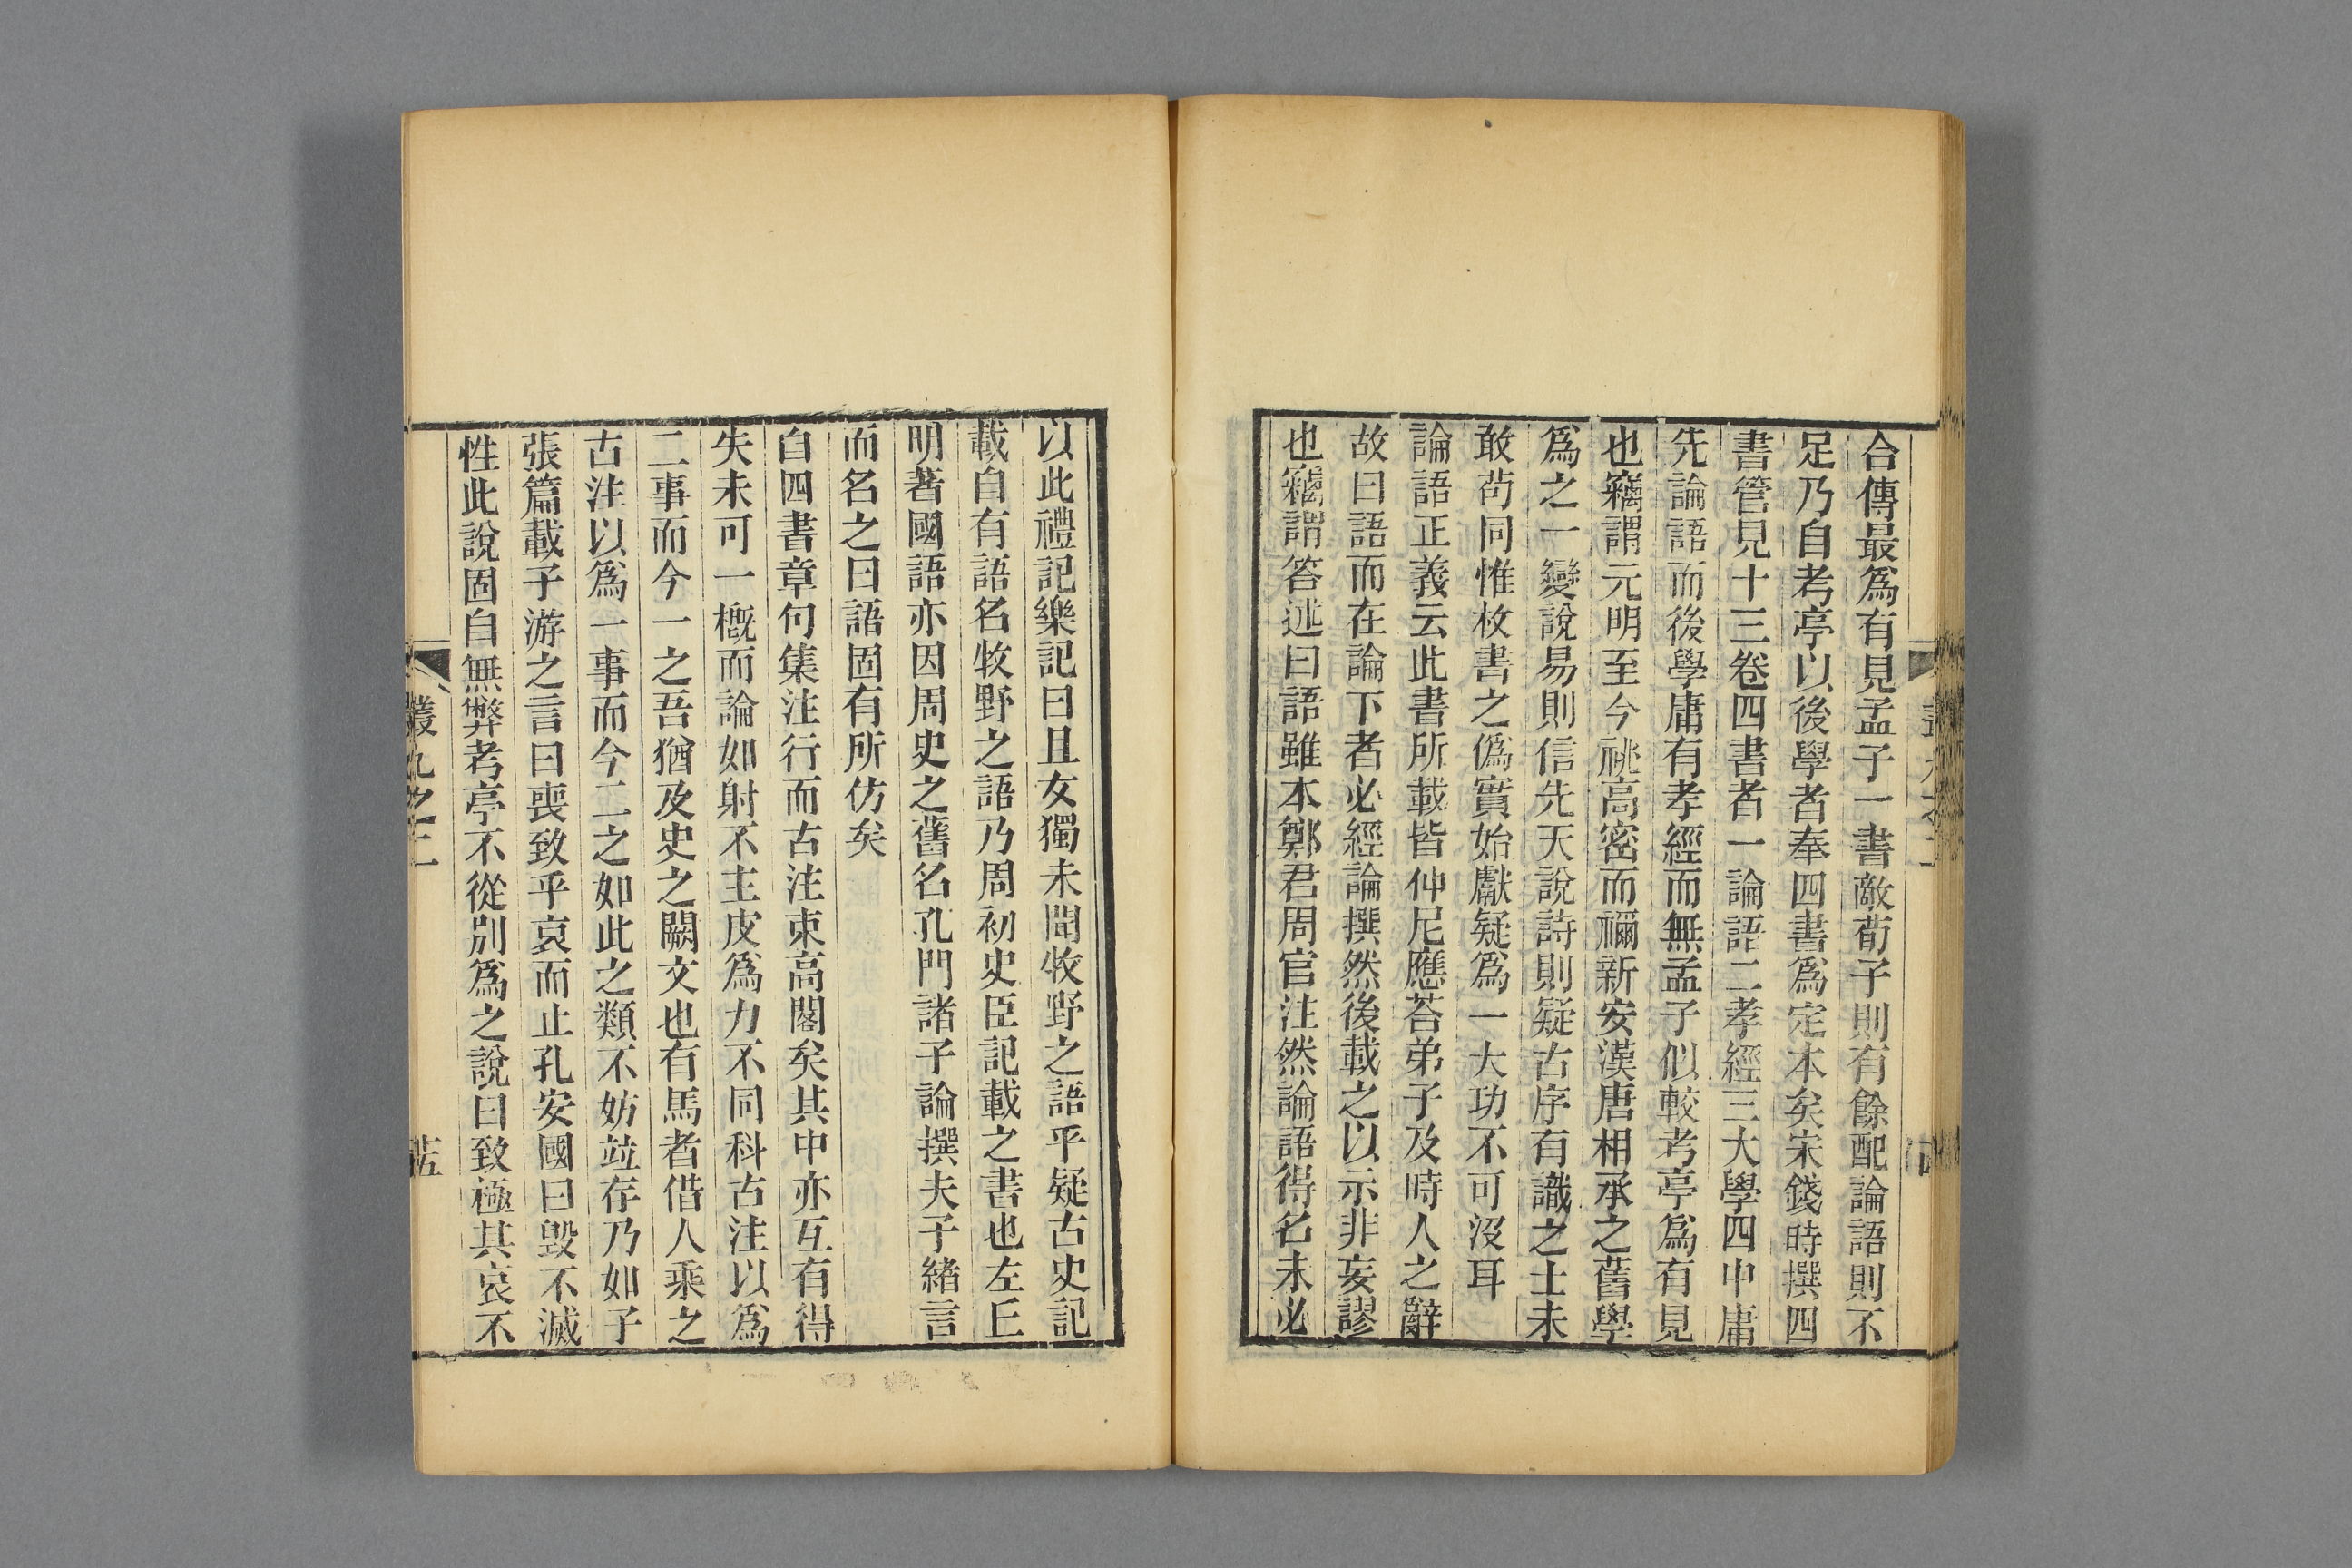 合傳最爲有見孟子一書敵荀子則有餘配論語則不
足乃自考亭以後學者奉四書爲定本矣宋錢時撰四
書管見十三卷四書者一論語二孝經三大學四中庸
先論語而後學庸有孝經而無孟子似較考亭爲有見
也竊謂元明至今祧高密而禰新安漢唐相承之舊學
爲之一變說易則信先天說詩則疑古序有識之士未
敢苟同惟枚書之僞實始獻疑爲一大功不可沒耳
論語正義云此書所載皆仲尼應荅弟子及時人之辭
故曰語而在論下者必經論撰然後載之以示非妄謬
也竊謂答述曰語雖本鄭君周官注然論語得名未必
以此禮記樂記曰且女獨未聞牧野之語乎疑古史記
載自有語名牧野之語乃周初史臣記載之書也左丘
明著國語亦因周史之舊名孔門諸子論撰夫子緒言
而名之曰語固有所仿矣
自四書章句集注行而古注束高閣矣其中亦互有得
失未可一概而論如射不主皮爲力不同科古注以爲
二事而今一之吾猶及史之闕文也有馬者借人乘之
古注以爲一事而今二之如此之類不妨竝存乃如子
張篇載子游之言曰喪致乎哀而止孔安國曰毁不滅
性此說固自無弊考亭不從別爲之說曰致極其哀不
叢九之二